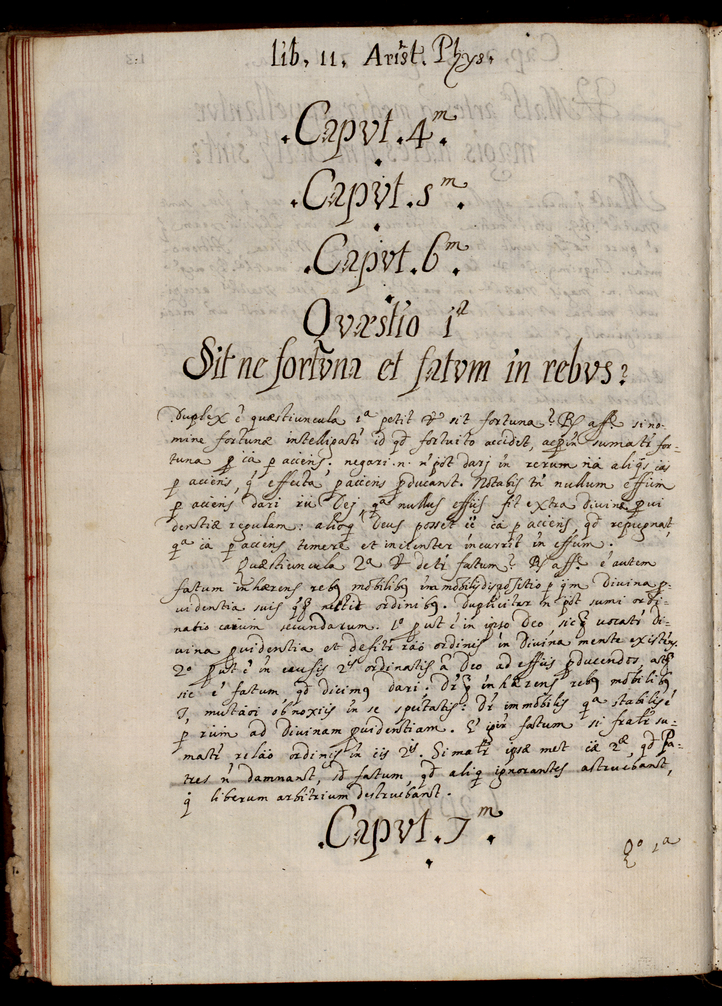 lib. 11. Arist. Phys.
.Capvt. 4.m
.Capvt. 5.m
.Capvt. 6.m
Qvæstio 1ª
Sit ne fortvna et fatvm in rebvs?
Duplex ẽ quæstiuncula 1ª petit sit fortuna? affe. si no-
mine fortunæ intelligasti id qd fortuito accidit, sumasti for-
tuna p cã p accens. negari. n. põt darj in rerum nã
p accens, effecta p accens pducant. Notabis tñ nullum effum
p accens dari Dej qª nullus effus fit extra divinæ pvi
dentiæ regulam: alioq Deus posset cã p accens, qd repugnat,
qª cã p accens temere et incurrit in effum.
Quæstiuncula 2ª detr fatum? affe. ẽ autem
fatum inhærens reb9 mobilib9 immobilis dispositio p qm divina p-
videntia suis nectit ordinib9. Dupliciter põt sumi ordi-
natio causarum secundarum. 1º put ẽ in ipso Deo vocatr di-
vina pvidentia et defitr rão ordinis in divina mente existens
2º put ẽ in causis 2is ordinatis a Deo ad effus pducendos,
sic ẽ fatum qd dicim9 dari: inhærens reb9 mobilib9
mutãoi obnoxiis in se spectatis: Dr immobilis qª stabilis ẽ
p ad divinam pvidentiam. fatum si su-
matr relão ordinis in 2is. Si matr ipsæ met cæ 2æ, qd Pa-
tres ñ damnant, sd fatum qd aliq ignorantes astruebant,
q liberum arbitrium destruebant.
.Capvt. 7.m
Qº 1ª